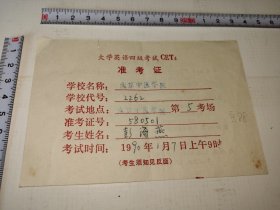 大学英语四级考试CET4
准考证
学校名称：南京中医学院
学校代号：2262
考试地点：第5考场
准考证号：580501
考生姓名：彭海燕
考试时间：1990年1月7日上午9时
（考生须知见反面）